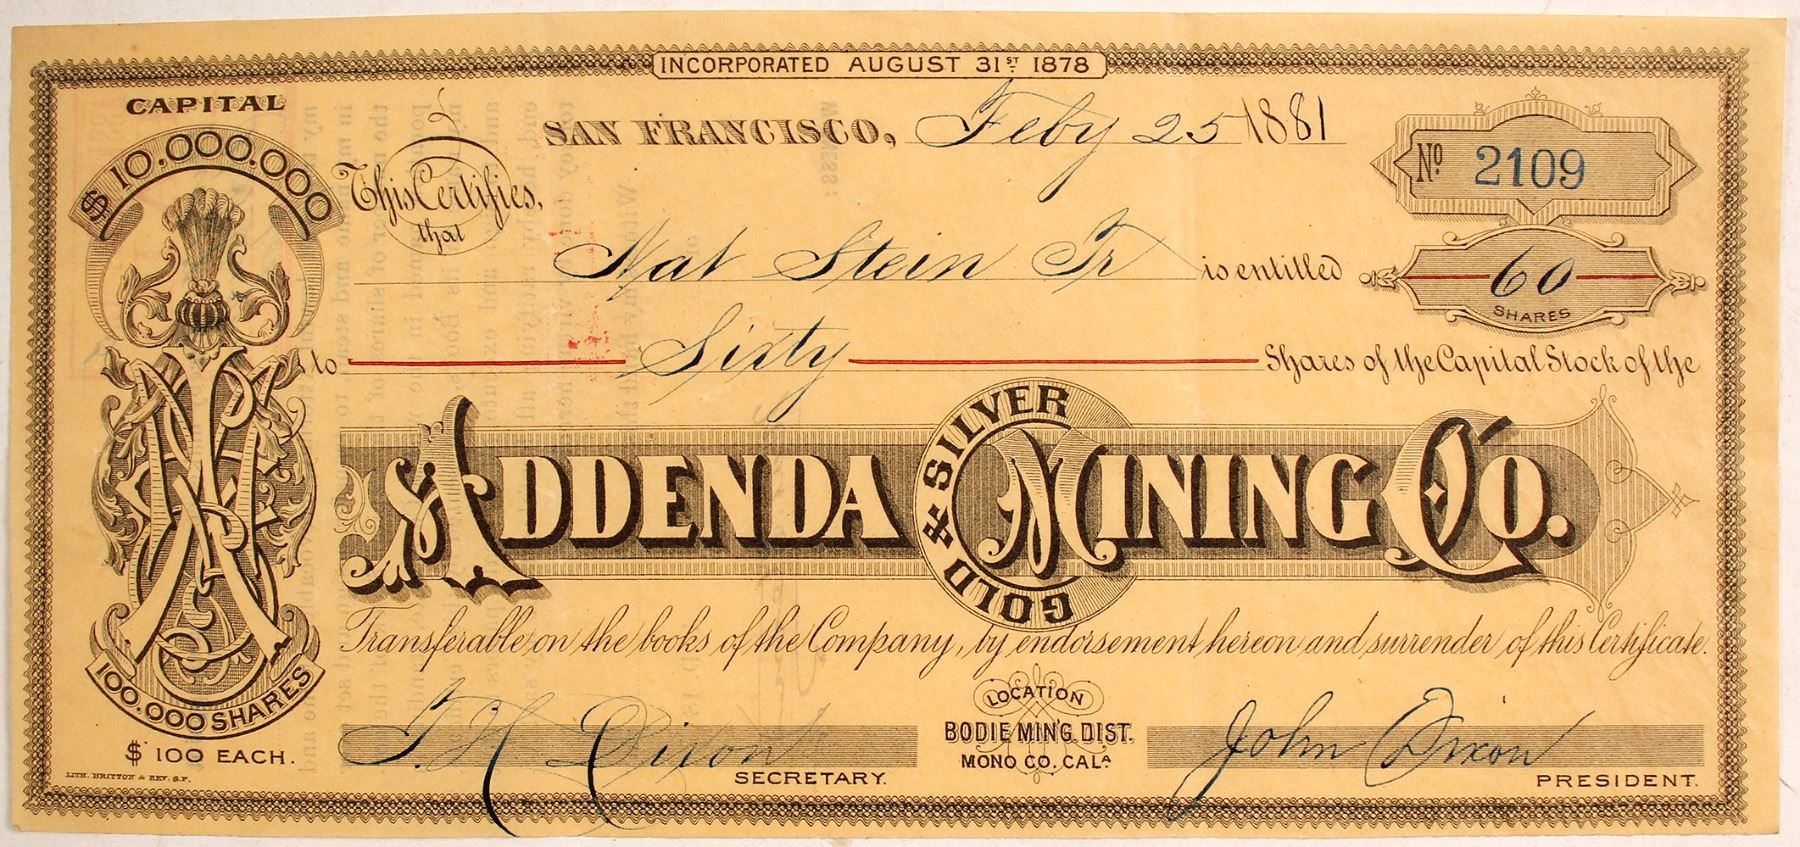 INCORPORATED AUGUST 31ST 1878
CAPITAL
$10.000.000
SAN FRANCISCO, Feby 25 1881
No 2109
This Certifies,
that
Nat Stein Tr is entitled
60
SHARES
to Sixty Shares of the Capital Stock of the
ADDENDA GOLD & SILVER MINING CO.
Transferable on the books of the Company, by endorsement hereon and surrender of this Certificate.
100.000 SHARES
$100 EACH.
LITH. BRITTON & REY. S.F.
T. H. Dixon
SECRETARY.
LOCATION
BODIE MIN'G. DIST.
MONO CO. CALA
John Dixon
PRESIDENT.